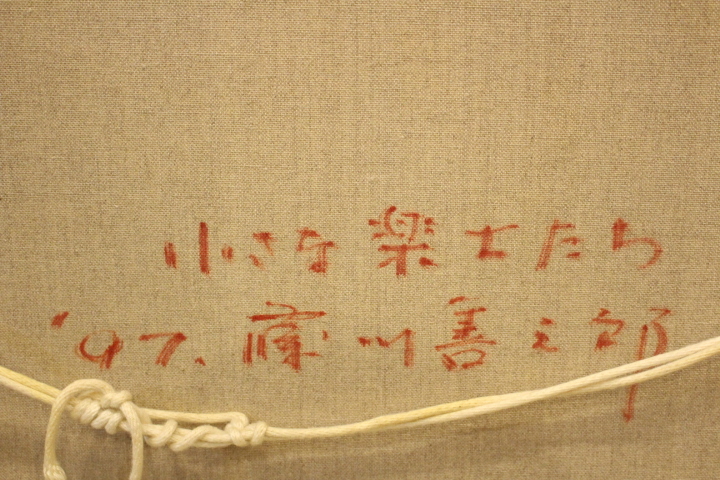 小さな楽士たち
'97. 藤川善之郎